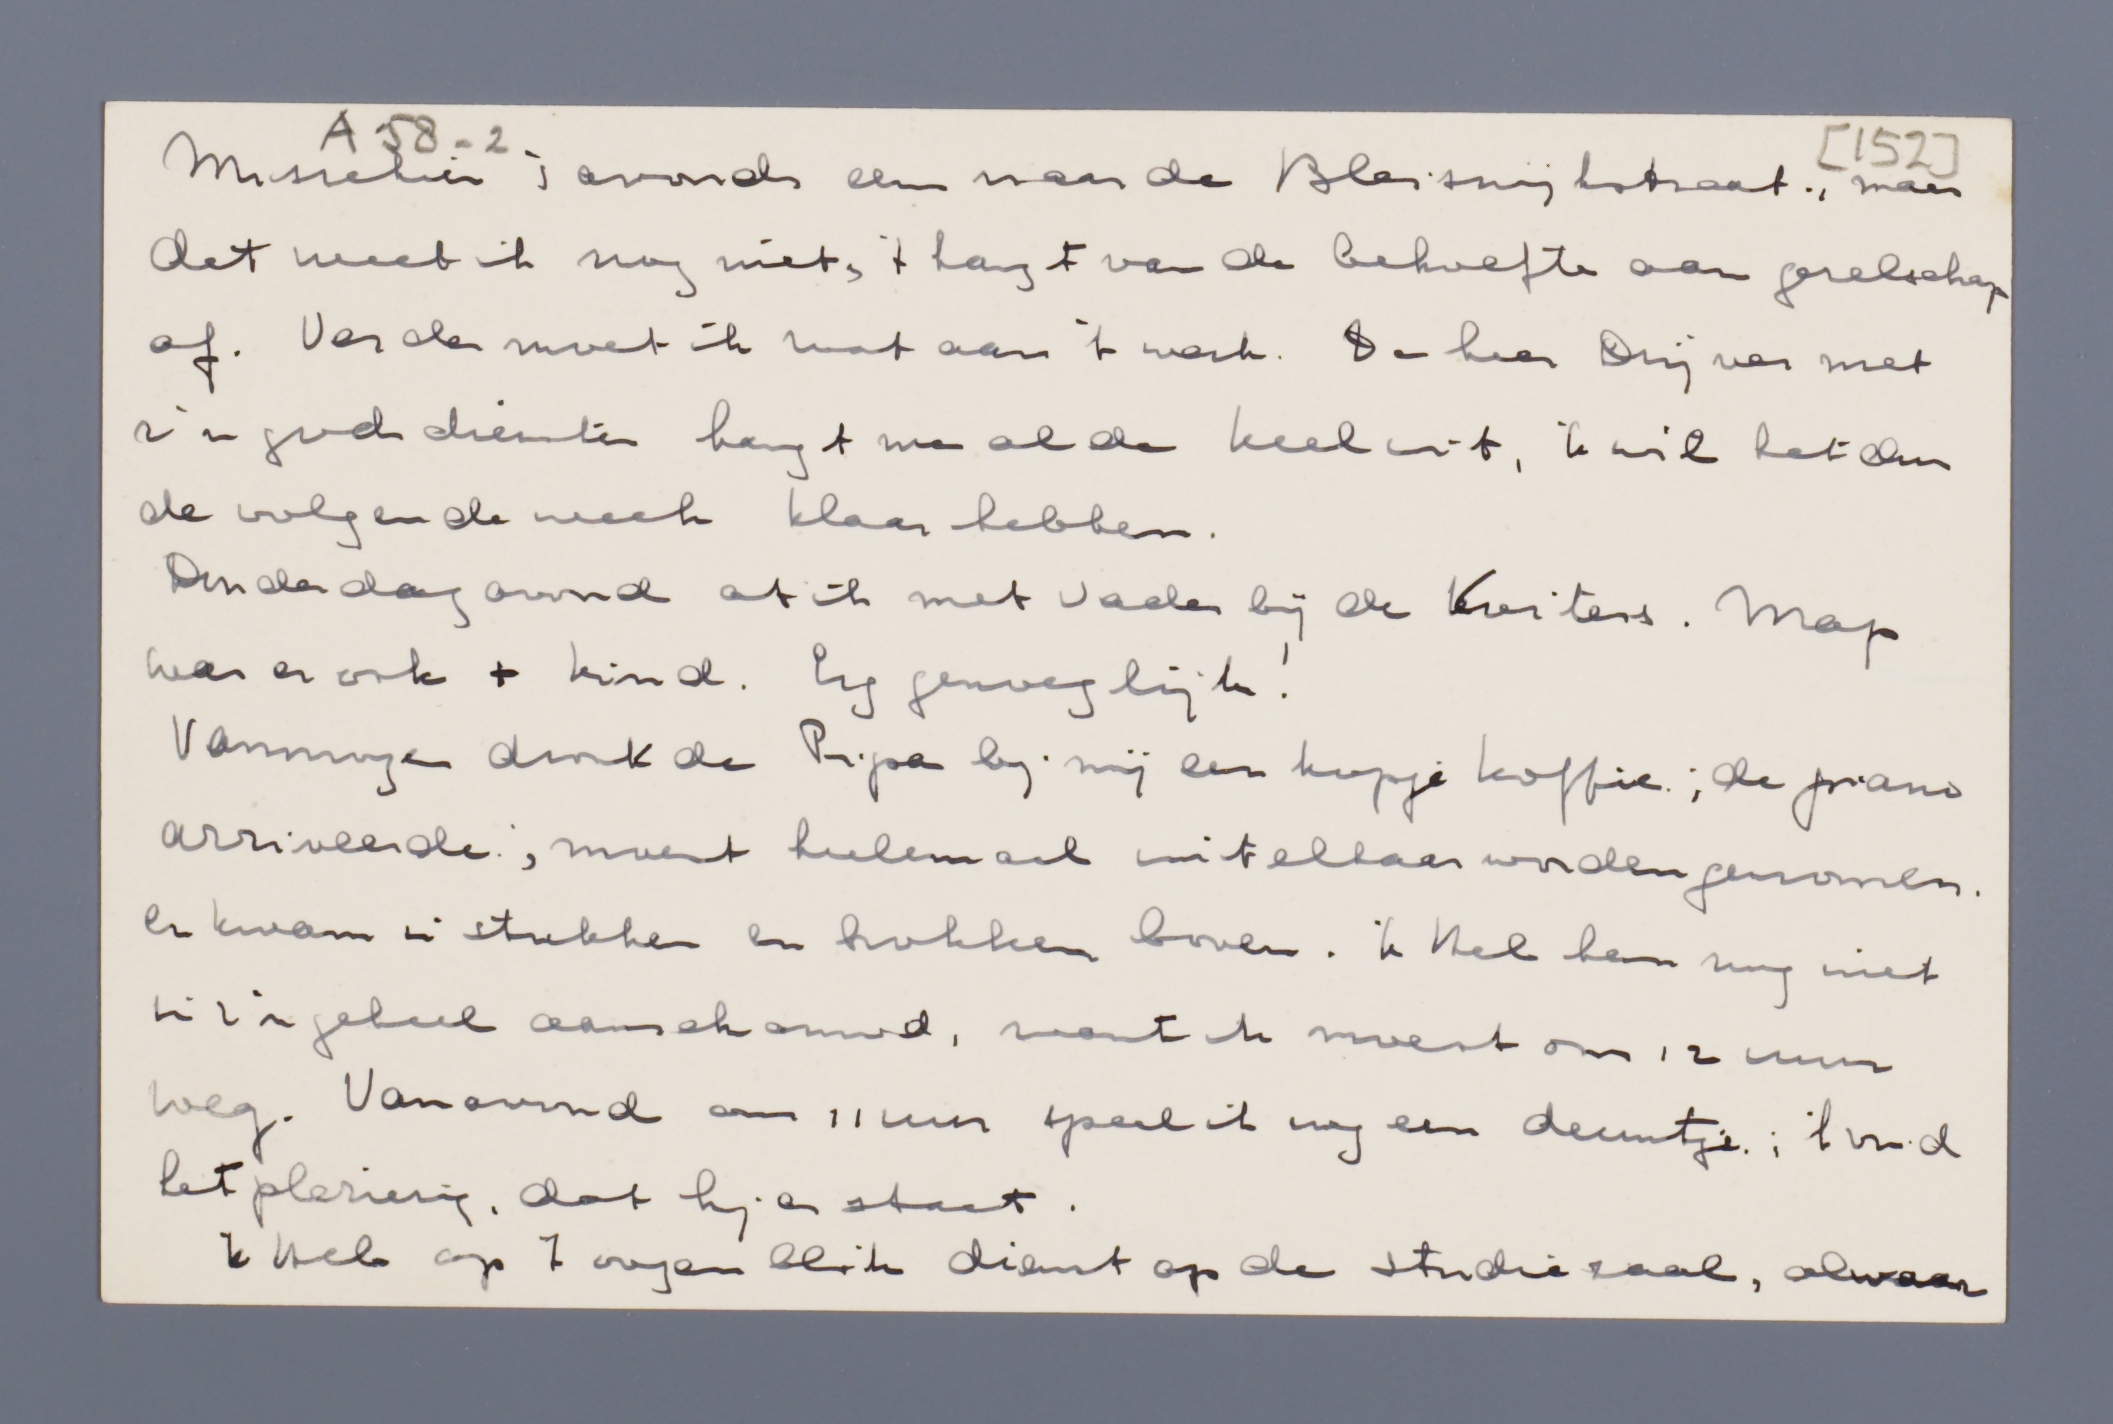 A 58-2
[152]
Misschien 's avonds eens naar de Bleiswijkstraat, maar
dat weet ik nog niet, 't hangt van de behoefte aan gezelschap
af. Verder moet ik wat aan 't werk. De heer Drijver met
z'n godsdiensten hangt me al de keel uit, ik wil het dus
de volgende week klaar hebben.
Donderdagavond at ik met Vader bij de Kruiters. Map
was er ook + kind. Erg genoeglijk!
Vanmorgen dronk de Pipa bij mij een kopje koffie; de piano
arriveerde, moest heelemaal uit elkaar worden genomen.
en kwam in stukken en brokken boven. Ik heb hem nog niet
in z'n geheel aanschouwd, want ik moest om 12 uur
weg. Vanavond om 11 uur speel ik nog een deuntje; ik vind
het plezierig, dat hij er staat.
Ik heb op 't oogenblik dienst op de studiezaal, alwaar